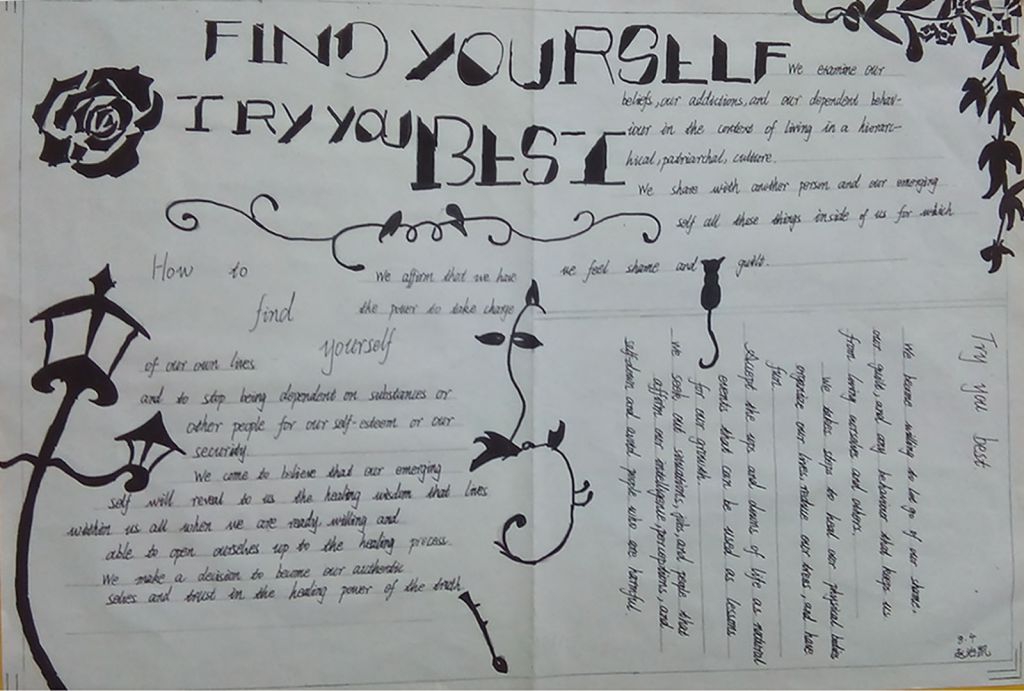 FIND YOURSELF
TRY YOU BEST
We examine our
beliefs, our addictions, and our dependent behav-
iour in the context of living in a hierarc-
hical, patriarchal, culture.
We share with another person and our emerging
self all those things inside of us for which
we feel shame and guilt.
How to
find
yourself
We affirm that we have
the power to take charge
of our own lives
and to stop being dependent on substances or
other people for our self-esteem or our
security.
We come to believe that our emerging
self will reveal to us the healing wisdom that lives
within us all when we are ready, willing and
able to open ourselves up to the healing process.
We make a decision to become our authentic
selves and trust in the healing power of the truth
Try you best
We become willing to let go of our shame,
our guilt, and any behaviour that keep us
from loving ourselves and others.
We takes steps to heal our physical bodies
organize our lives, reduce our stress, and have
fun.
Accept the ups and downs of life as natural
events that can be used as lessons
for our growth.
We seek out situations, jobs, and people that
affirm our intelligence, perceptions, and
self-down and avoid people who are harmful.